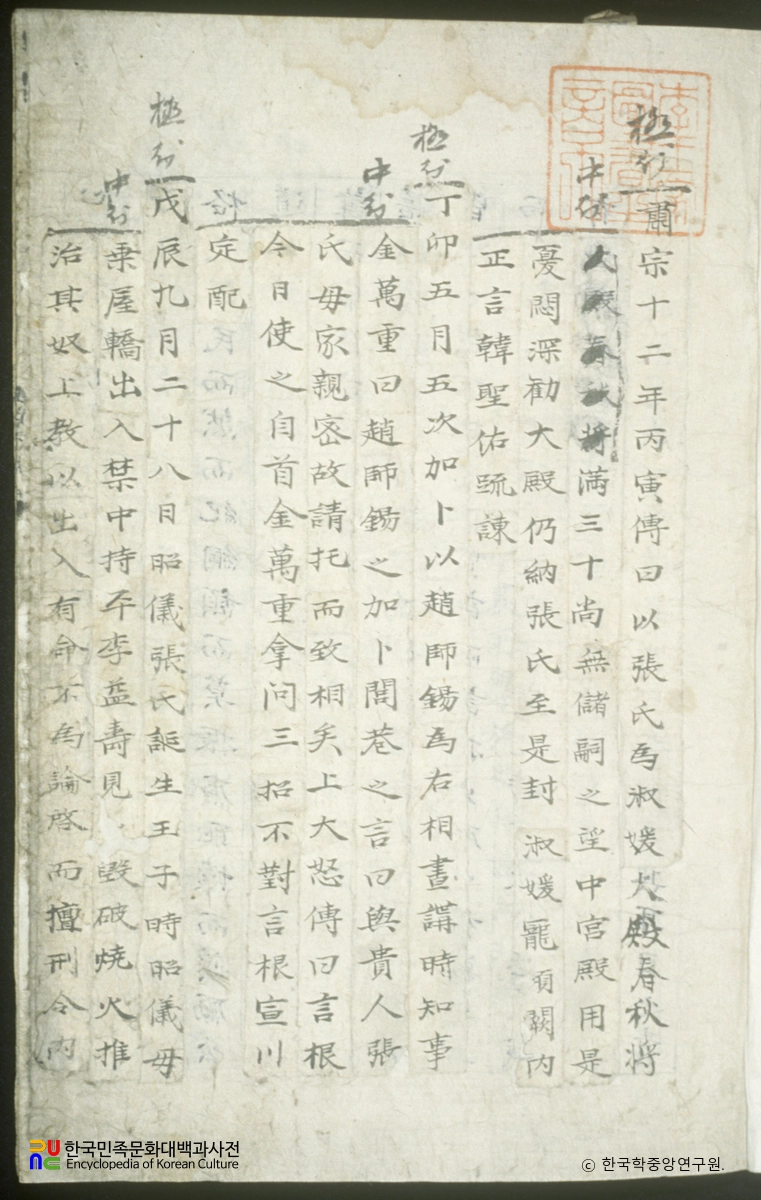 極行
中行
肅
宗十二年丙寅傳曰以張氏爲淑媛大殿春秋將
大殿春秋將滿三十尙無儲嗣之望中宮殿用是
憂悶深勸大殿仍納張氏至是封淑媛寵傾闕內
正言韓聖佑疏諫
極行
丁卯五月五次加卜以趙師錫爲右相晝講時知事
中行
金萬重曰趙師錫之加卜閭巷之言曰與貴人張
氏母家親密故請托而致相矣上大怒傳曰言根
令日使之自首金萬重拿問三招不對言根宣川
定配
極行
戊辰九月二十八日昭儀張氏誕生王子時昭儀母
中行
乘屋轎出入禁中持平李益壽見 毀破燒火推
治其奴上敎以出入有命不爲論啓而擅刑令內
한국민족문화대백과사전
Encyclopedia of Korean Culture
© 한국학중앙연구원.